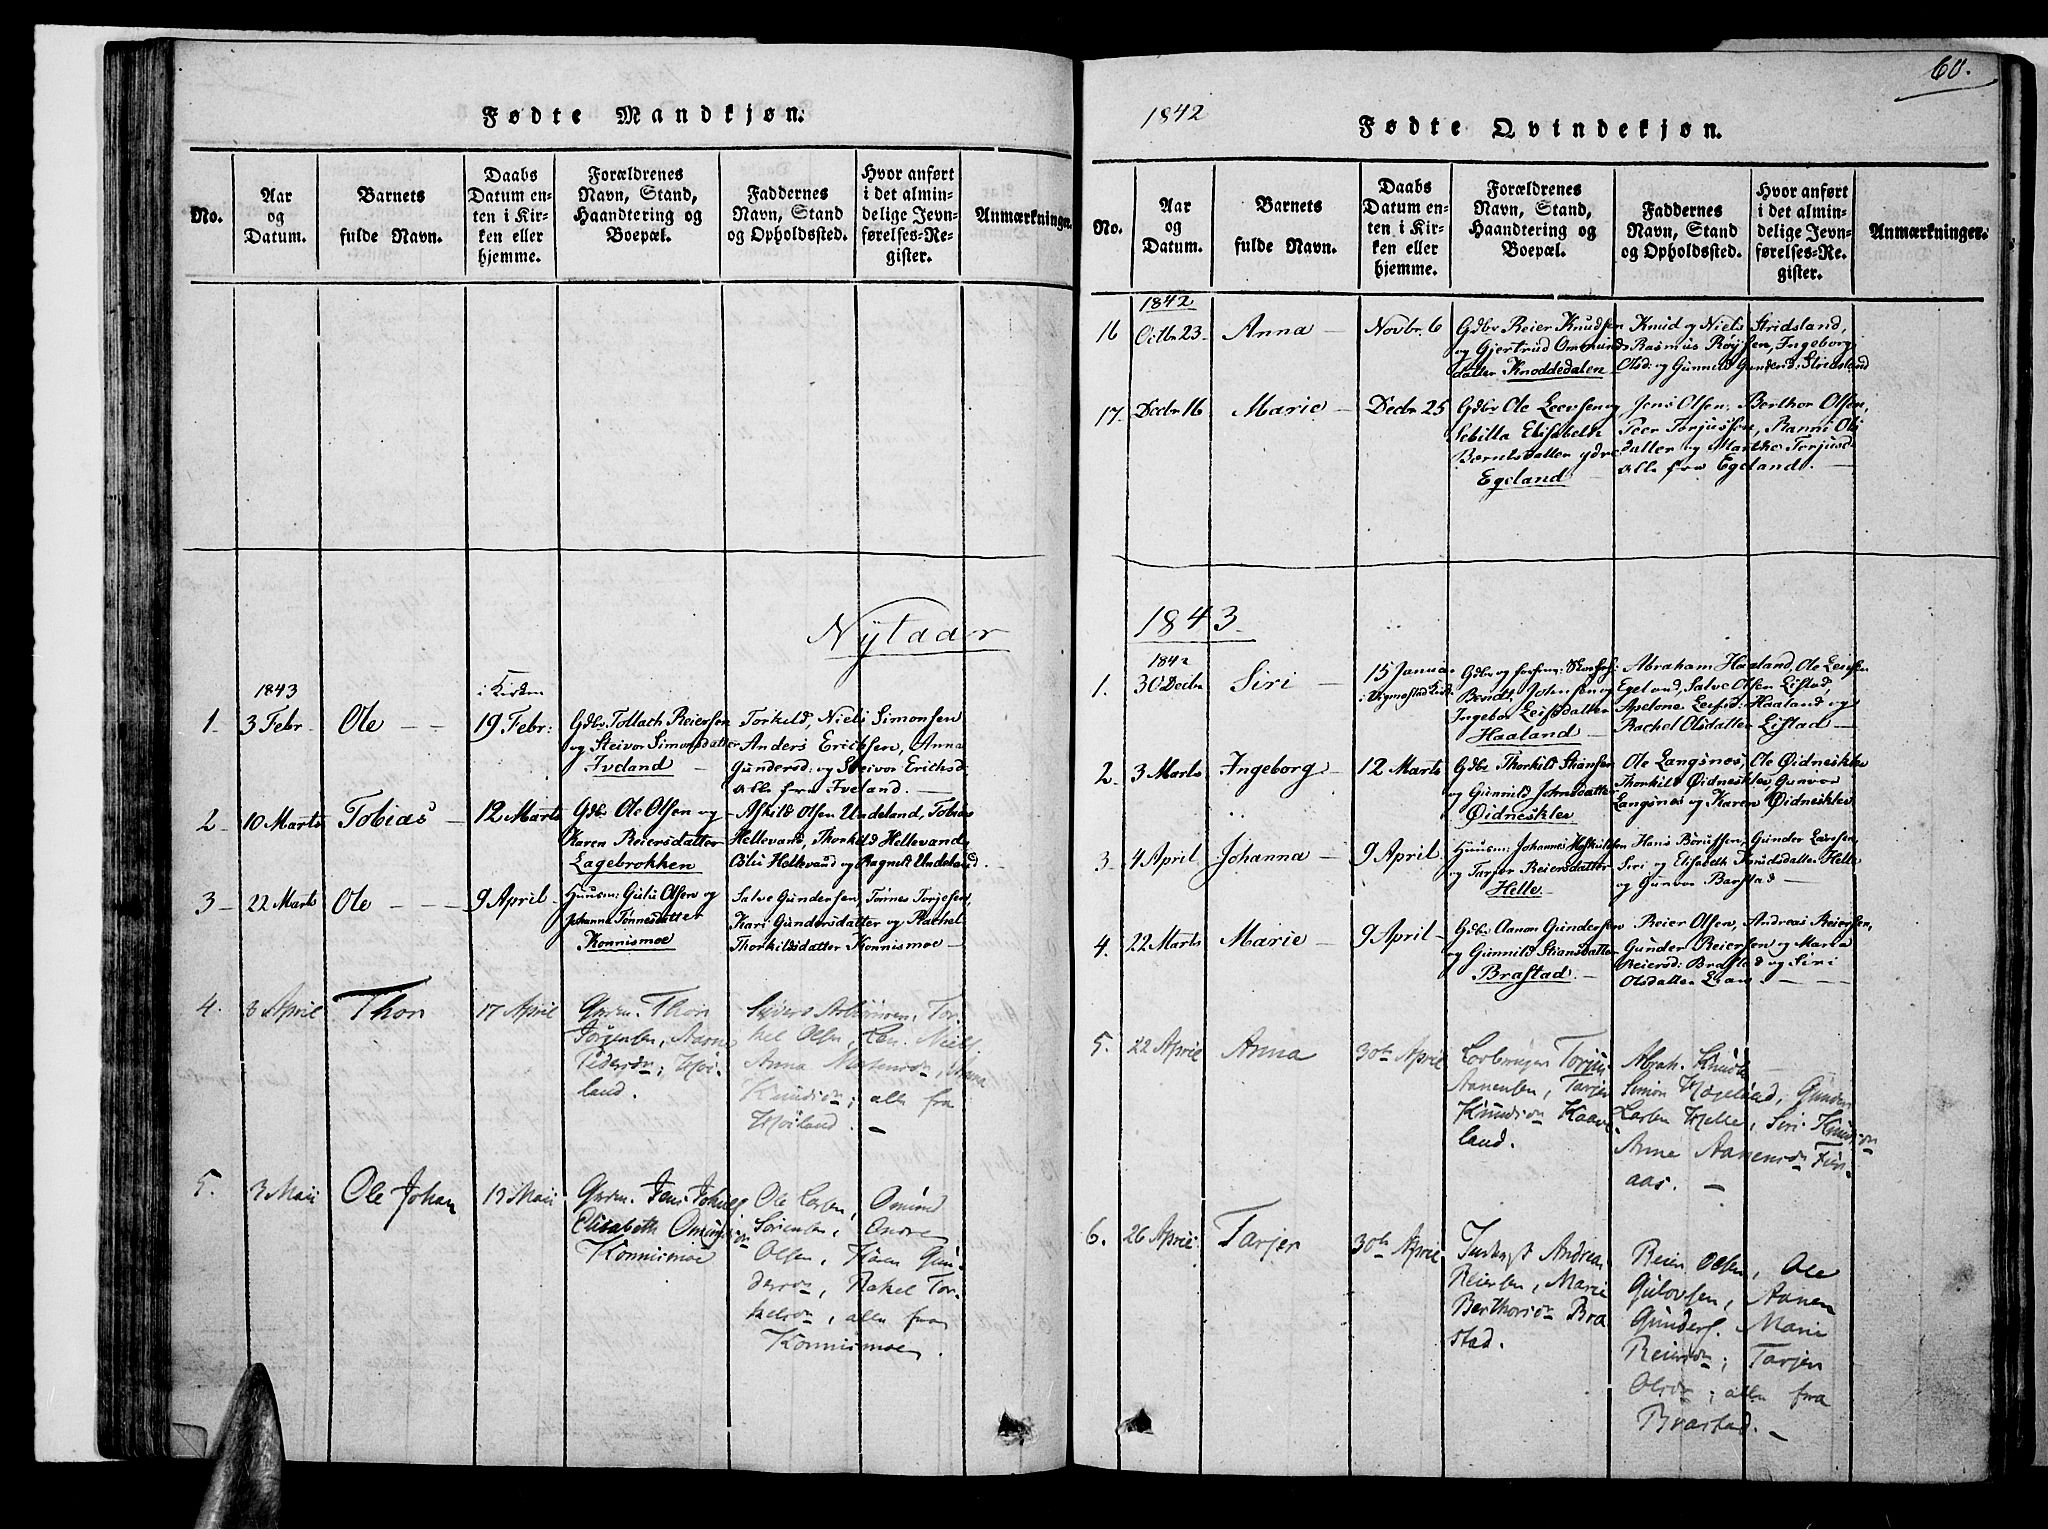 Fødte Mandkjøn.
No.
Aar
og
Datum.
Barnets
fulde Navn.
Daabs
Datum en-
ten i Kir-
ken eller
hjemme.
Forældrenes
Navn, Stand,
Haandtering og
Boepæl.
Faddernes
Navn, Stand
og Opholdssted.
Hvor anført
i det almin-
delige Jevn-
førelses-Re-
gister.
Anmærkninger.
Nytaar
1843
1.
3 Febr.
Ole
i Kirken
19 Febr:
Gdbr Tollach Reiersen
og Steivor Simonsdatter
Iveland
Torkild, Niels Simonsen
Anders Erichsen, Anna
Gundersd: og Steivor Erichsd.
alle fra Iveland.
2
10 Marts
Tobias
12 Marts
Gdbr Ole Olsen og
Karen Reiersdatter
Lagebrokken
Askild Olsen Undeland, Tobias
Hellevand, Thorkild Hellevand
Hellevand og Ragnild Undeland.
3
22 Marts
Ole
9 April
Huusm: Gulu Olsen og
Johanna Tønnesdatter
Konnismoe
Salve Gundersen, Tørnes Torjesen,
Kari Gundersdatter og Rachel
Thorkildsdatter Konnismoe
4.
8 April
Thor
17 April
Thor
Jørgensen, Aasne
Pedersdn, Høi-
land.
Tor-
kel Olsen, Niels
Anna Mortensdn, Anna
Knudsdn; alle fra
Høiland.
5.
3 Mai
Ole Johan
Jens
Elisabeth
Konnismoe
Ole Larsen, Omund
Sørensen, Andre
Olsen, Gun-
dersdn, Rakel Tor-
kelsdn, alle fra
Konnismoe
60.
1842
Fødte Qvindekjøn.
No.
Aar
og
Datum.
Barnets
fulde Navn.
Daabs
Datum en-
ten i Kir-
ken eller
hjemme.
Forældrenes
Navn, Stand,
Haandtering og
Boepæl.
Faddernes
Navn, Stand
og Opholdssted.
Hvor anført
i det almin-
delige Jevn-
førelses-Re-
gister.
Anmærkninger.
1842
16
Octbr 23
Anna
Novbr. 6
Gdbr Reier Knudsen
og Gjertrud Ommunds
datter Knoddedalen
Knud og Niels Stridsland,
Rasmus Røysen, Ingeborg
Olsd: og Gunnild Gundersd: Stridsland
17.
Decbr 16
Marie
Decbr 25
Gdbr Ole Leevsen og
Sebilla Elisabeth
Berntsdatter ydre
Egeland
Jens Olsen, Berthor Olsen,
Peer Torjussen, Ranni Ols
datter og Marthe Torjusd.
alle fra Egeland.
1843
1842
1.
30 Decbr
Siri
15 Januar
i Vigmostad Kirke
Gdbr og
Berndt Johnsen og
Ingebor Leifsdatter
Haaland
Abraham Haaland, Ole Leifsen
Egeland, Salve Olsen Eistad,
Apelone Leifsd: Haaland og
Rachel Olsdatter Eistad
2.
3 Marts
Ingeborg
12 Marts
Gdbr Thorkild Stiansen
og Gunnild Johnsdatter
Øidnesklev
Ole Langsnes, Ole Øidnesklev
Thorkild Øidnesklev, Gunvor
Langsnes og Karen Øidnesklev
3.
4 April
Johanna
9 April
Huusm: Johannes
og Tarjer Reiersdatter
Helle
Hans Berntsen, Gunder Larsen,
Siri og Elisabeth Knudsdatter Helle
og Gunvor Barstad
4.
22 Marts
Marie
9 April
Gdbr Aanon Gundersen
og Gunnild Stiansdatter
Brastad.
Reier Olsen, Andreas Reiersen,
Gunder Reiersen og Maria
Reiersd: Brastad og Siri
Olsdatter
5.
22 April
Anna
30te April
Torjus
Aanensen, Tarjer
Knudsdn Kaave-
land.
Abrah. Knuds
Simon Høgeland, Gunder
Larsen Helle, Siri Knudsdn
Anna Aanensdn Fur-
aas.
6.
26 April
Tarjer
30te April
Andreas
Reiersen, Marie
Berthorsdn Bra
stad.
Reier Olsen, Ole
Gulovsen, Aanen
Gunders. Marie
Reiersdn, Tarjer
Olsdn; alle fra
Brastad.